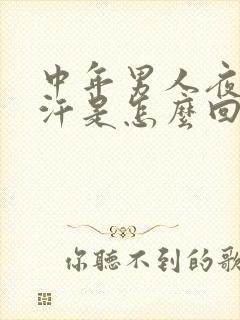 中年男人夜
汗是怎麼回
你聽不到的歌